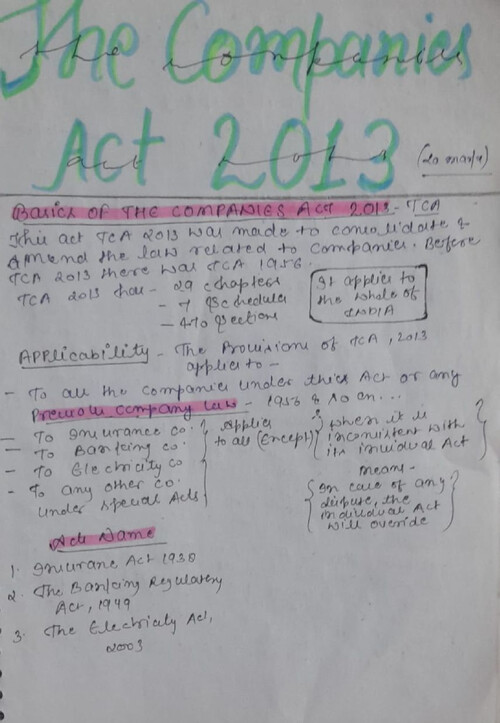 The Companies
the companies
Act 2013
act 2013
(20 marks)
BASICS OF THE COMPANIES ACT 2013 - TCA
This act TCA 2013 was made to consolidate &
Amend the law related to companies. Before
TCA 2013 there was TCA 1956.
TCA 2013 has - 29 chapters
- 7 Schedules
- 470 Sections
It applies to
the whole of
INDIA
APPLICABILITY - The Provisions of TCA, 2013
applies to -
- To all the companies under this Act or any
Previous company law - 1956 & so on...
- To Insurance co.
- To Banking co.
- To Electricity co
- To any other co.
under special Acts
Applies
to all (Except)
when it is
inconsistent with
its individual Act
means -
In case of any
dispute, the
individual Act
will override
Acts Name
1. Insurance Act 1938
2. The Banking Regulatory
Act, 1949
3. The Electricity Act,
2003